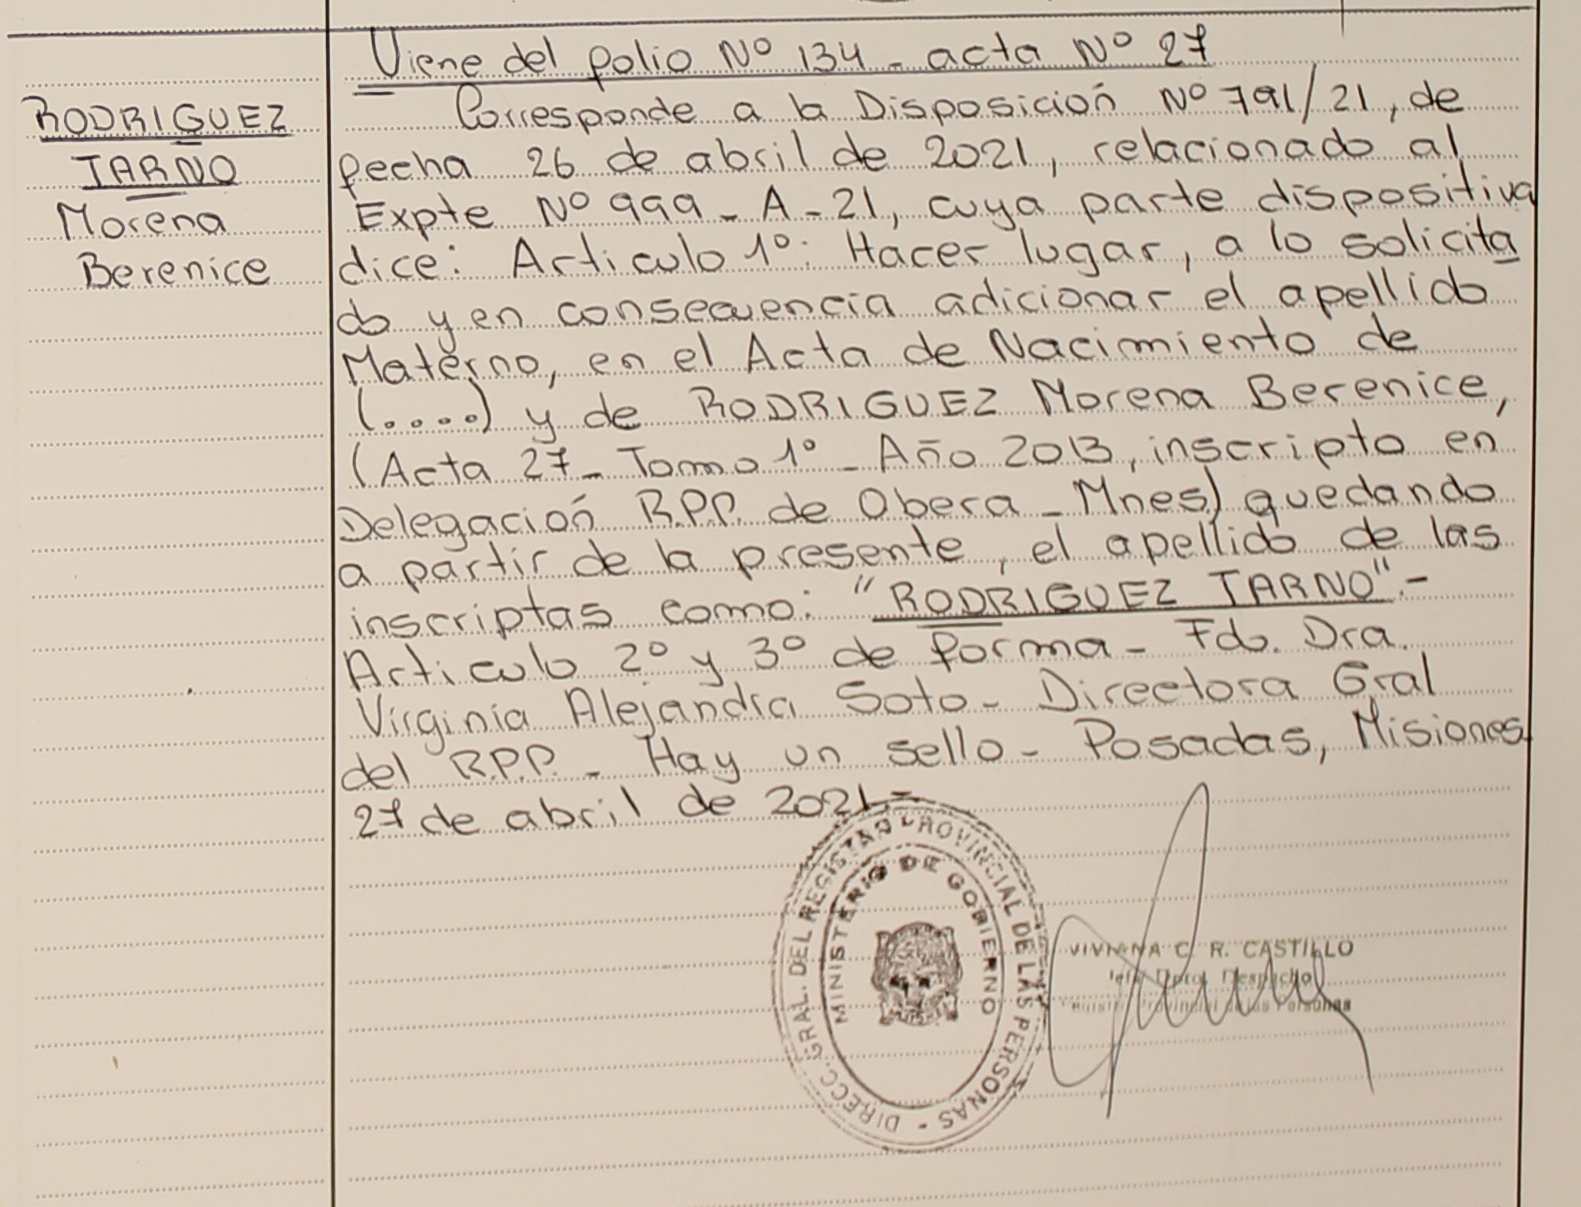 RODRIGUEZ
TARNO
Morena
Berenice
Viene del folio Nº 134 - acta Nº 27
Corresponde a la Disposición Nº 791/21, de
fecha 26 de abril de 2021, relacionado al
Expte Nº 999 - A - 21, cuya parte dispositiva
dice: Articulo 1º: Hacer lugar, a lo solicita
do y en consecuencia adicionar el apellido
Materno, en el Acta de Nacimiento de
(....) y de RODRIGUEZ Morena Berenice,
(Acta 27 - Tomo 1º - Año 2013, inscripto en
Delegación R.P.P. de Obera - Mnes) quedando
a partir de la presente, el apellido de las
inscriptas como: "RODRIGUEZ TARNO".-
Articulo 2º y 3º de forma - Fdo. Dra.
Virginia Alejandra Soto - Directora Gral
del R.P.P. - Hay un sello - Posadas, Misiones
27 de abril de 2021.-
DIRECC. GRAL. DEL REGISTRO PROVINCIAL DE LAS PERSONAS -
MINISTERIO DE GOBIERNO
VIVIANA C. R. CASTILLO
Jefe Dpto. Despacho
Provincial de las Personas